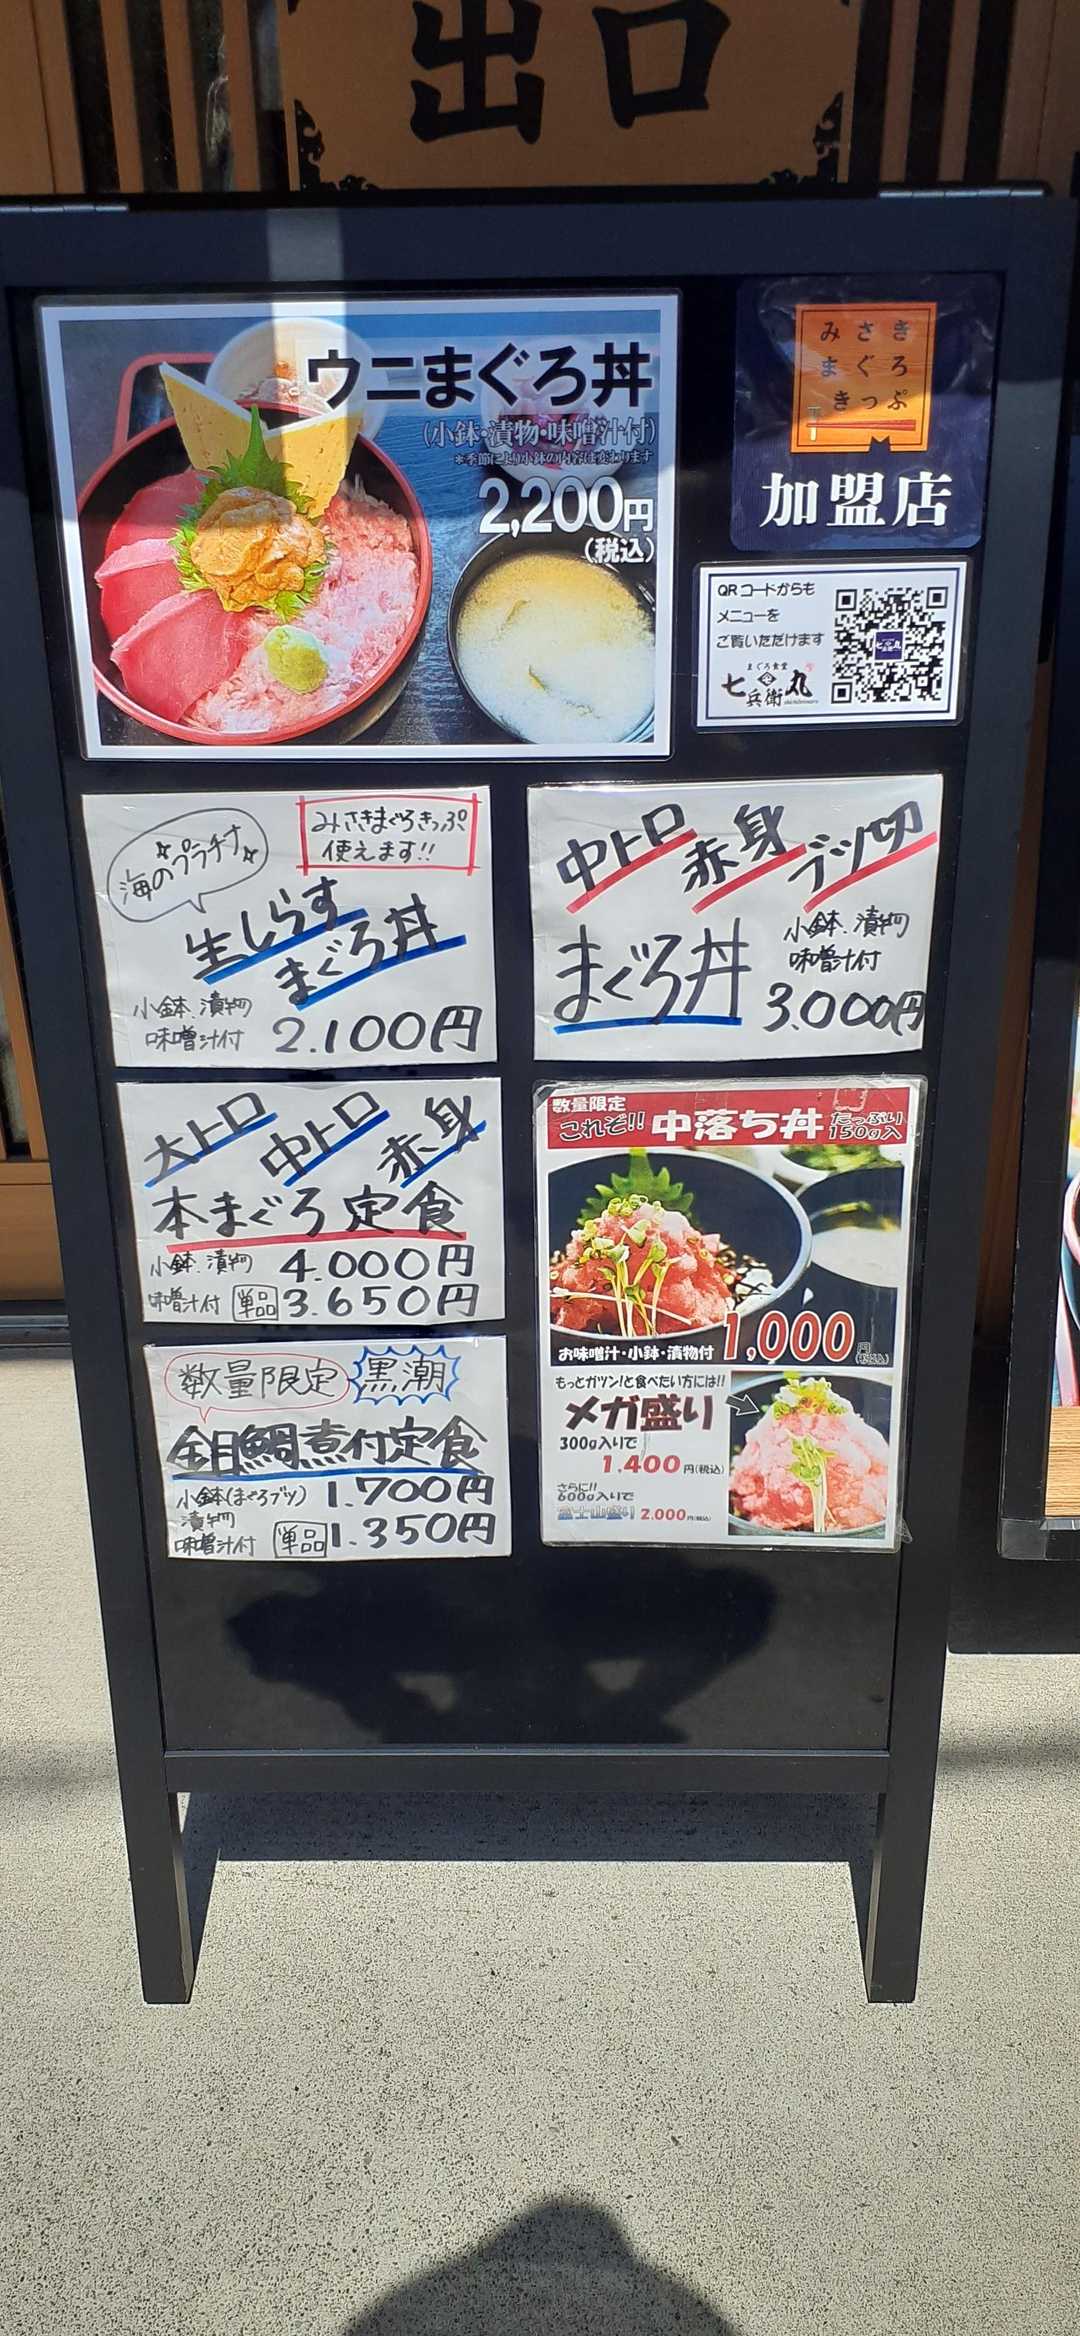 出口
ウニまぐろ丼
(小鉢・漬物・味噌汁付)
*季節により小鉢の内容は変わります
2,200円
(税込)
みさき
まぐろ
きっぷ
加盟店
QRコードからも
メニューを
ご覧いただけます
まぐろ食堂
七兵衛丸
海のプラチナ
みさきまぐろきっぷ
使えます!!
生しらす
まぐろ丼
小鉢.漬物
味噌汁付
2.100円
中トロ 赤身 ブツ切
まぐろ丼
小鉢.漬物
味噌汁付
3.000円
大トロ 中トロ 赤身
本まぐろ定食
小鉢.漬物 4.000円
味噌汁付 単品 3.650円
数量限定 黒潮
金目鯛煮付定食
小鉢(まぐろブツ) 1.700円
漬物
味噌汁付 単品 1.350円
数量限定
これぞ!! 中落ち丼 たっぷり
150g入
お味噌汁・小鉢・漬物付 1,000円
(税込)
もっとガツン!と食べたい方には!!
メガ盛り
300g入りで
1,400円(税込)
さらに!!
600g入りで
富士山盛り 2.000円(税込)